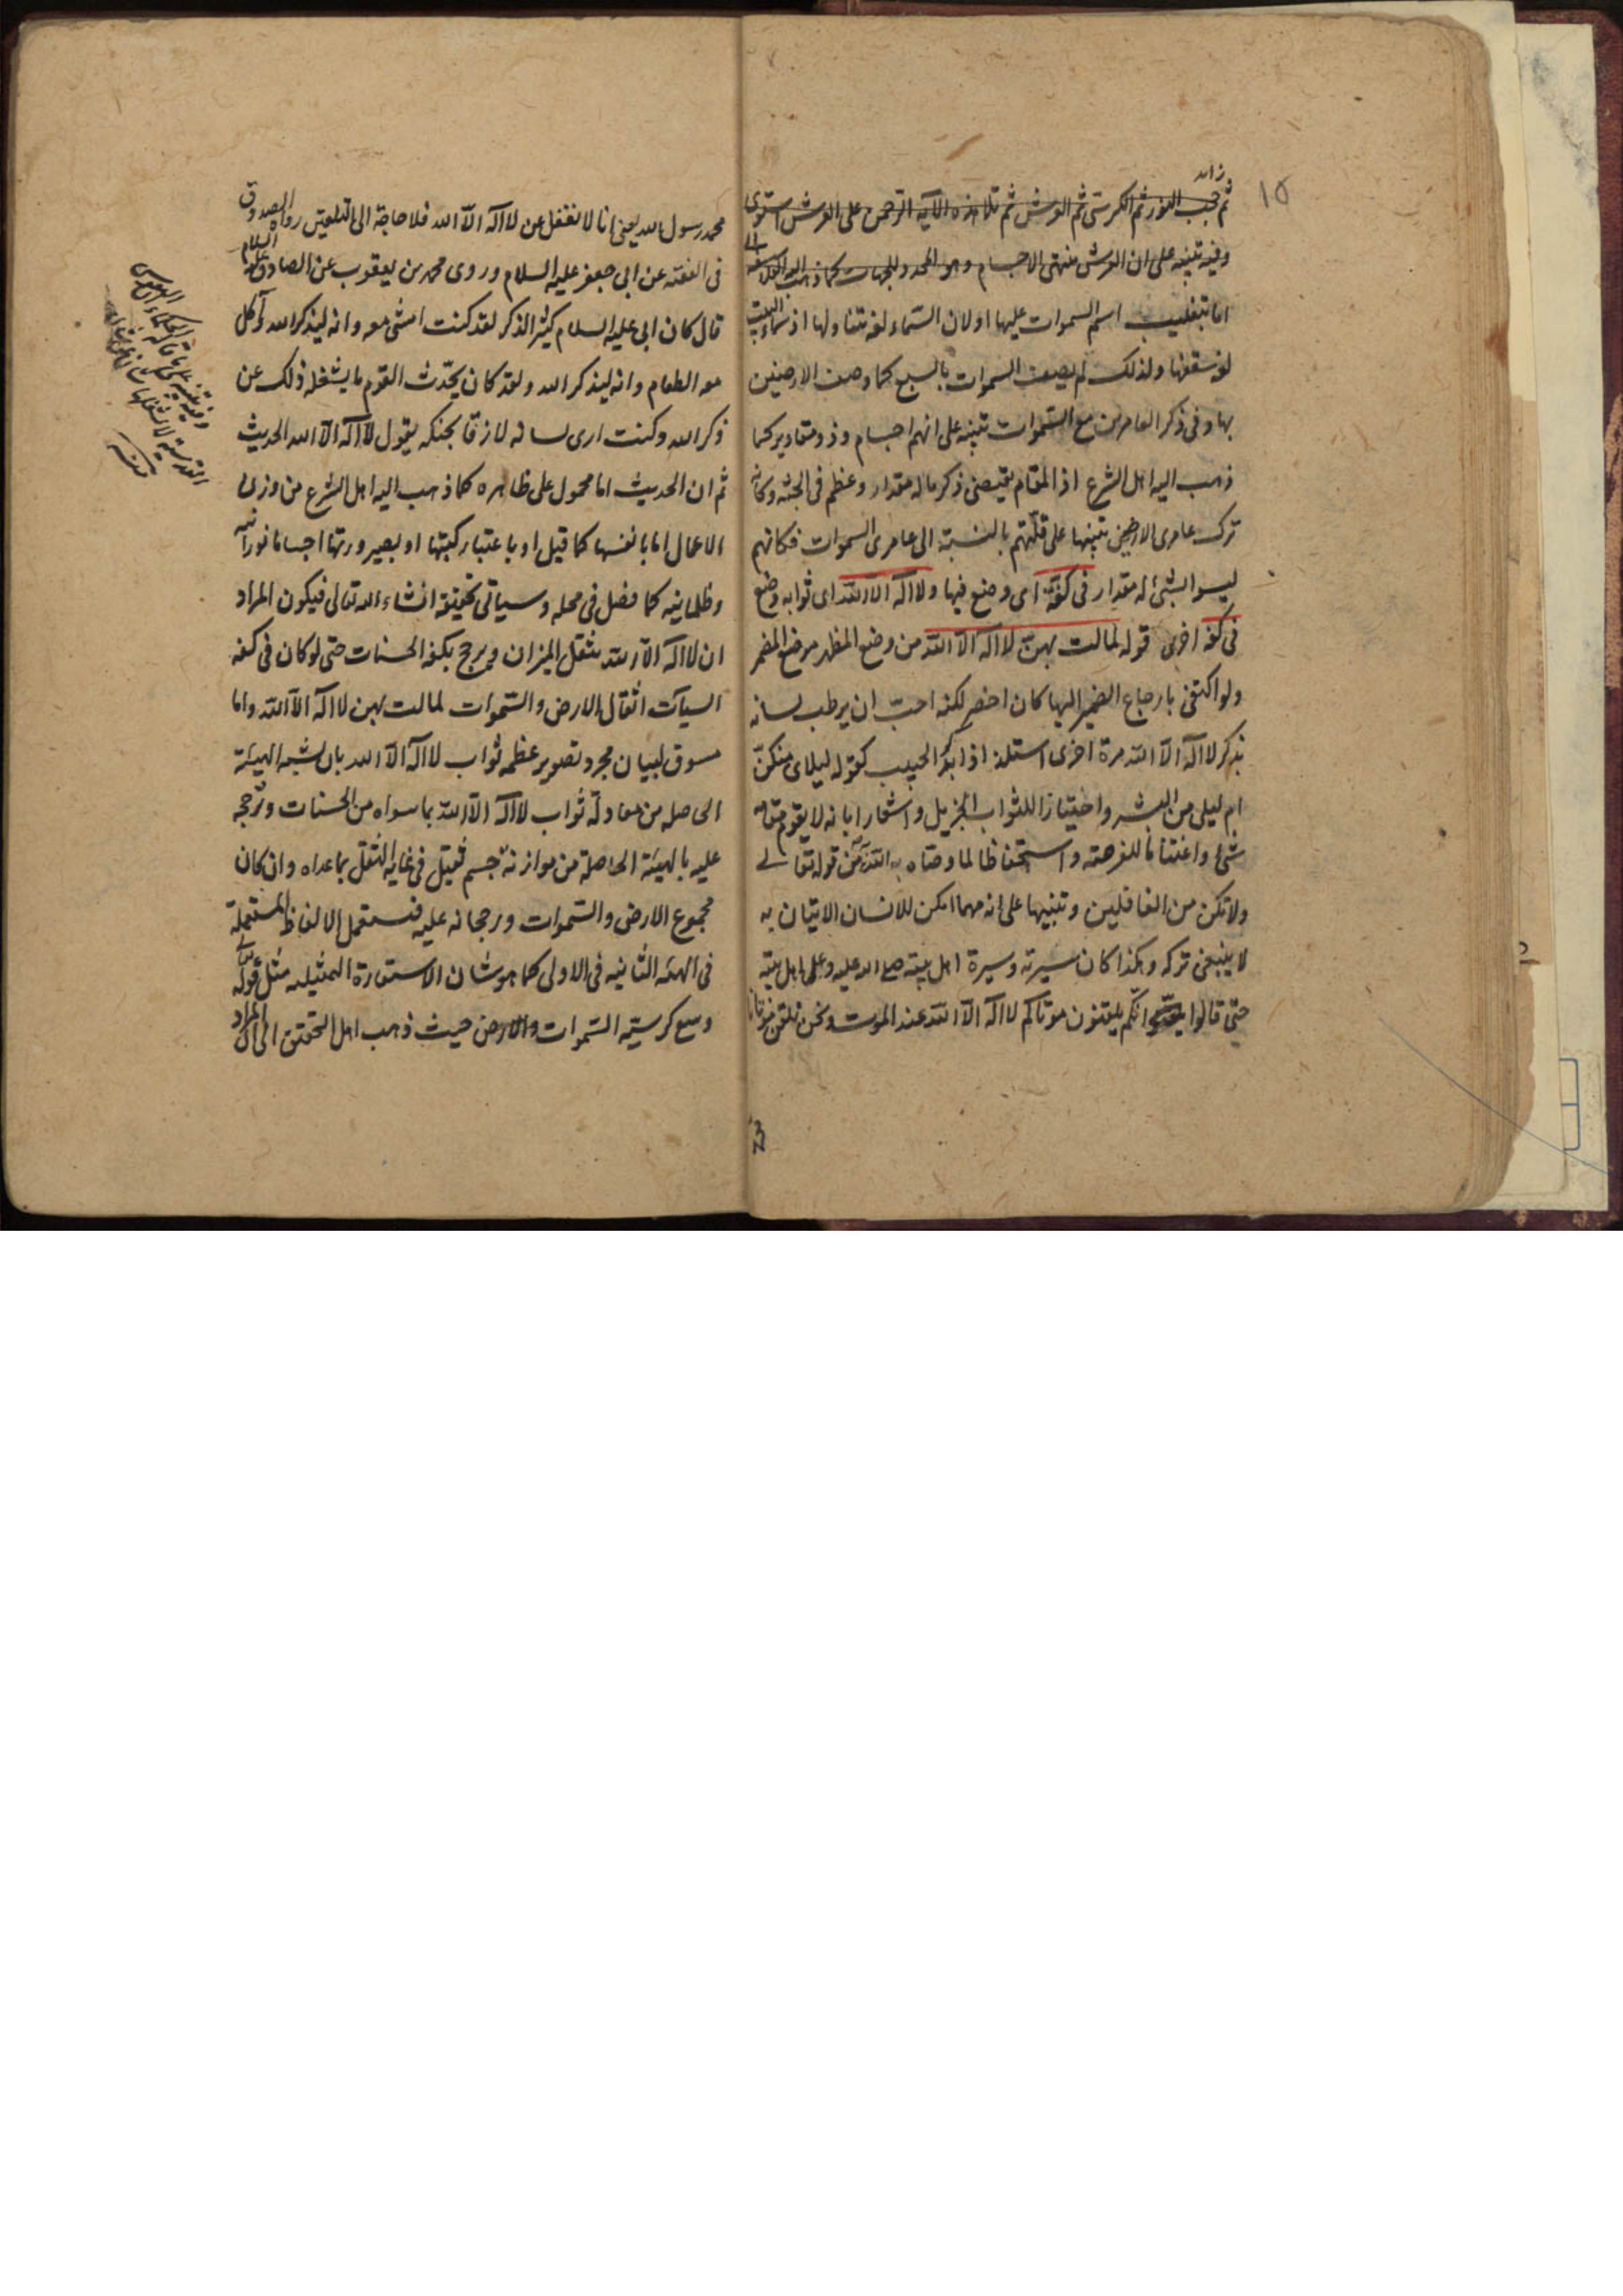 زائد
١٥
ثم حجب النور ثم الكرسى ثم العرش ثم تلا هذه الآية الرحمن على العرش استوى
وفيه تنبيه على ان العرش منتهى الاجسام وهو المحدد للجهات كما ذهب اليه
اما بتغليب اسم السموات عليها او لان السماء لغة تتناولها اذ سماء البيت
لغة سقفها ولذلك لم يصف السموات بالسبع كما وصف الارضين
بها وفى ذكر العامرين مع السموات تنبيه على انهم اجسام وذو مقادير كما
ذهب اليه اهل الشرع اذ المقام يقتضى ذكر ماله مقدار وعظم فى الجثه وكانه
ترك عامرى الارضين تنبيها على قلتهم بالنسبة الى عامرى السموات فكانهم
ليسوا بشئ له مقدار فى كفة اى وضع فيها ولا اله الا الله اى ثوابه وضع
فى كفة اخرى قوله لمالت بهن لا اله الا الله من وضع المظهر موضع المضمر
ولو اكتفى بارجاع الضمير اليها كان اخصر لكنه احب ان يرطب لسانه
بذكر لا اله الا الله مرة اخرى استلذاذا بذكر الحبيب كقوله ليلاى منكن
ام ليلى من البشر واختيارا للثواب الجزيل واشعارا بانه لا يقوم مقامه
شئ واغتناما للفرصته واستحفاظا لما وصاه به الله من قوله تعالى
ولا تكن من الغافلين وتنبيها على انه مهما امكن للانسان الاتيان به
لا ينبغى تركه وهكذا كان سيرته وسيرة اهل بيته صلى الله عليه وعلى اهل بيته
حتى قالوا انكم يلقنون موتاكم لا اله الا الله عند الموت ونحن نلقن موتانا
محمد رسول الله يعنى انا لا نغفل عن لا اله الا الله فلا حاجة الى التلقين رواه الصدوق
فى الفقيه عن ابى جعفر عليه السلام وروى محمد بن يعقوب عن الصادق عليه السلام
قال كان ابى عليه السلام كثير الذكر لقد كنت امشى معه وانه ليذكر الله وآكل
معه الطعام وانه ليذكر الله ولقد كان يحدث القوم ما يشغله ذلك عن
ذكر الله وكنت ارى لسانه لازقا بحنكه يقول لا اله الا الله الحديث
ثم ان الحديث اما محمول على ظاهره كما ذهب اليه اهل الشرع من وزن
الاعمال اما بانفسها كما قيل او باعتبار كتبتها او بصيرورتها اجساما نورانيه
وظلمانيه كما فصل فى محله وسياتى تحقيقه انشاء الله تعالى فيكون المراد
ان لا اله الا الله يثقل الميزان ويرجح بكفة الحسنات حتى لو كان فى كفه
السيآت اثقال الارض والسموات لمالت بهن لا اله الا الله واما
مسوق لبيان مجرد تصوير عظمه ثواب لا اله الا الله بان يشبه الهيئة
الحاصله من معادلة ثواب لا اله الا الله بما سواه من الحسنات وترجحه
عليه بالهيئة الحاصلة من موازنة جسم ثقيل فى غاية الثقل بما عداه وان كان
مجموع الارض والسموات ورجحانه عليه فتستعمل الالفاظ المستعملة
فى الهيئه الثانيه فى الاولى كما هو شان الاستعارة التمثيليه مثل قوله تعالى
وسع كرسيه السموات والارض حيث ذهب اهل التحقيق الى ان المراد